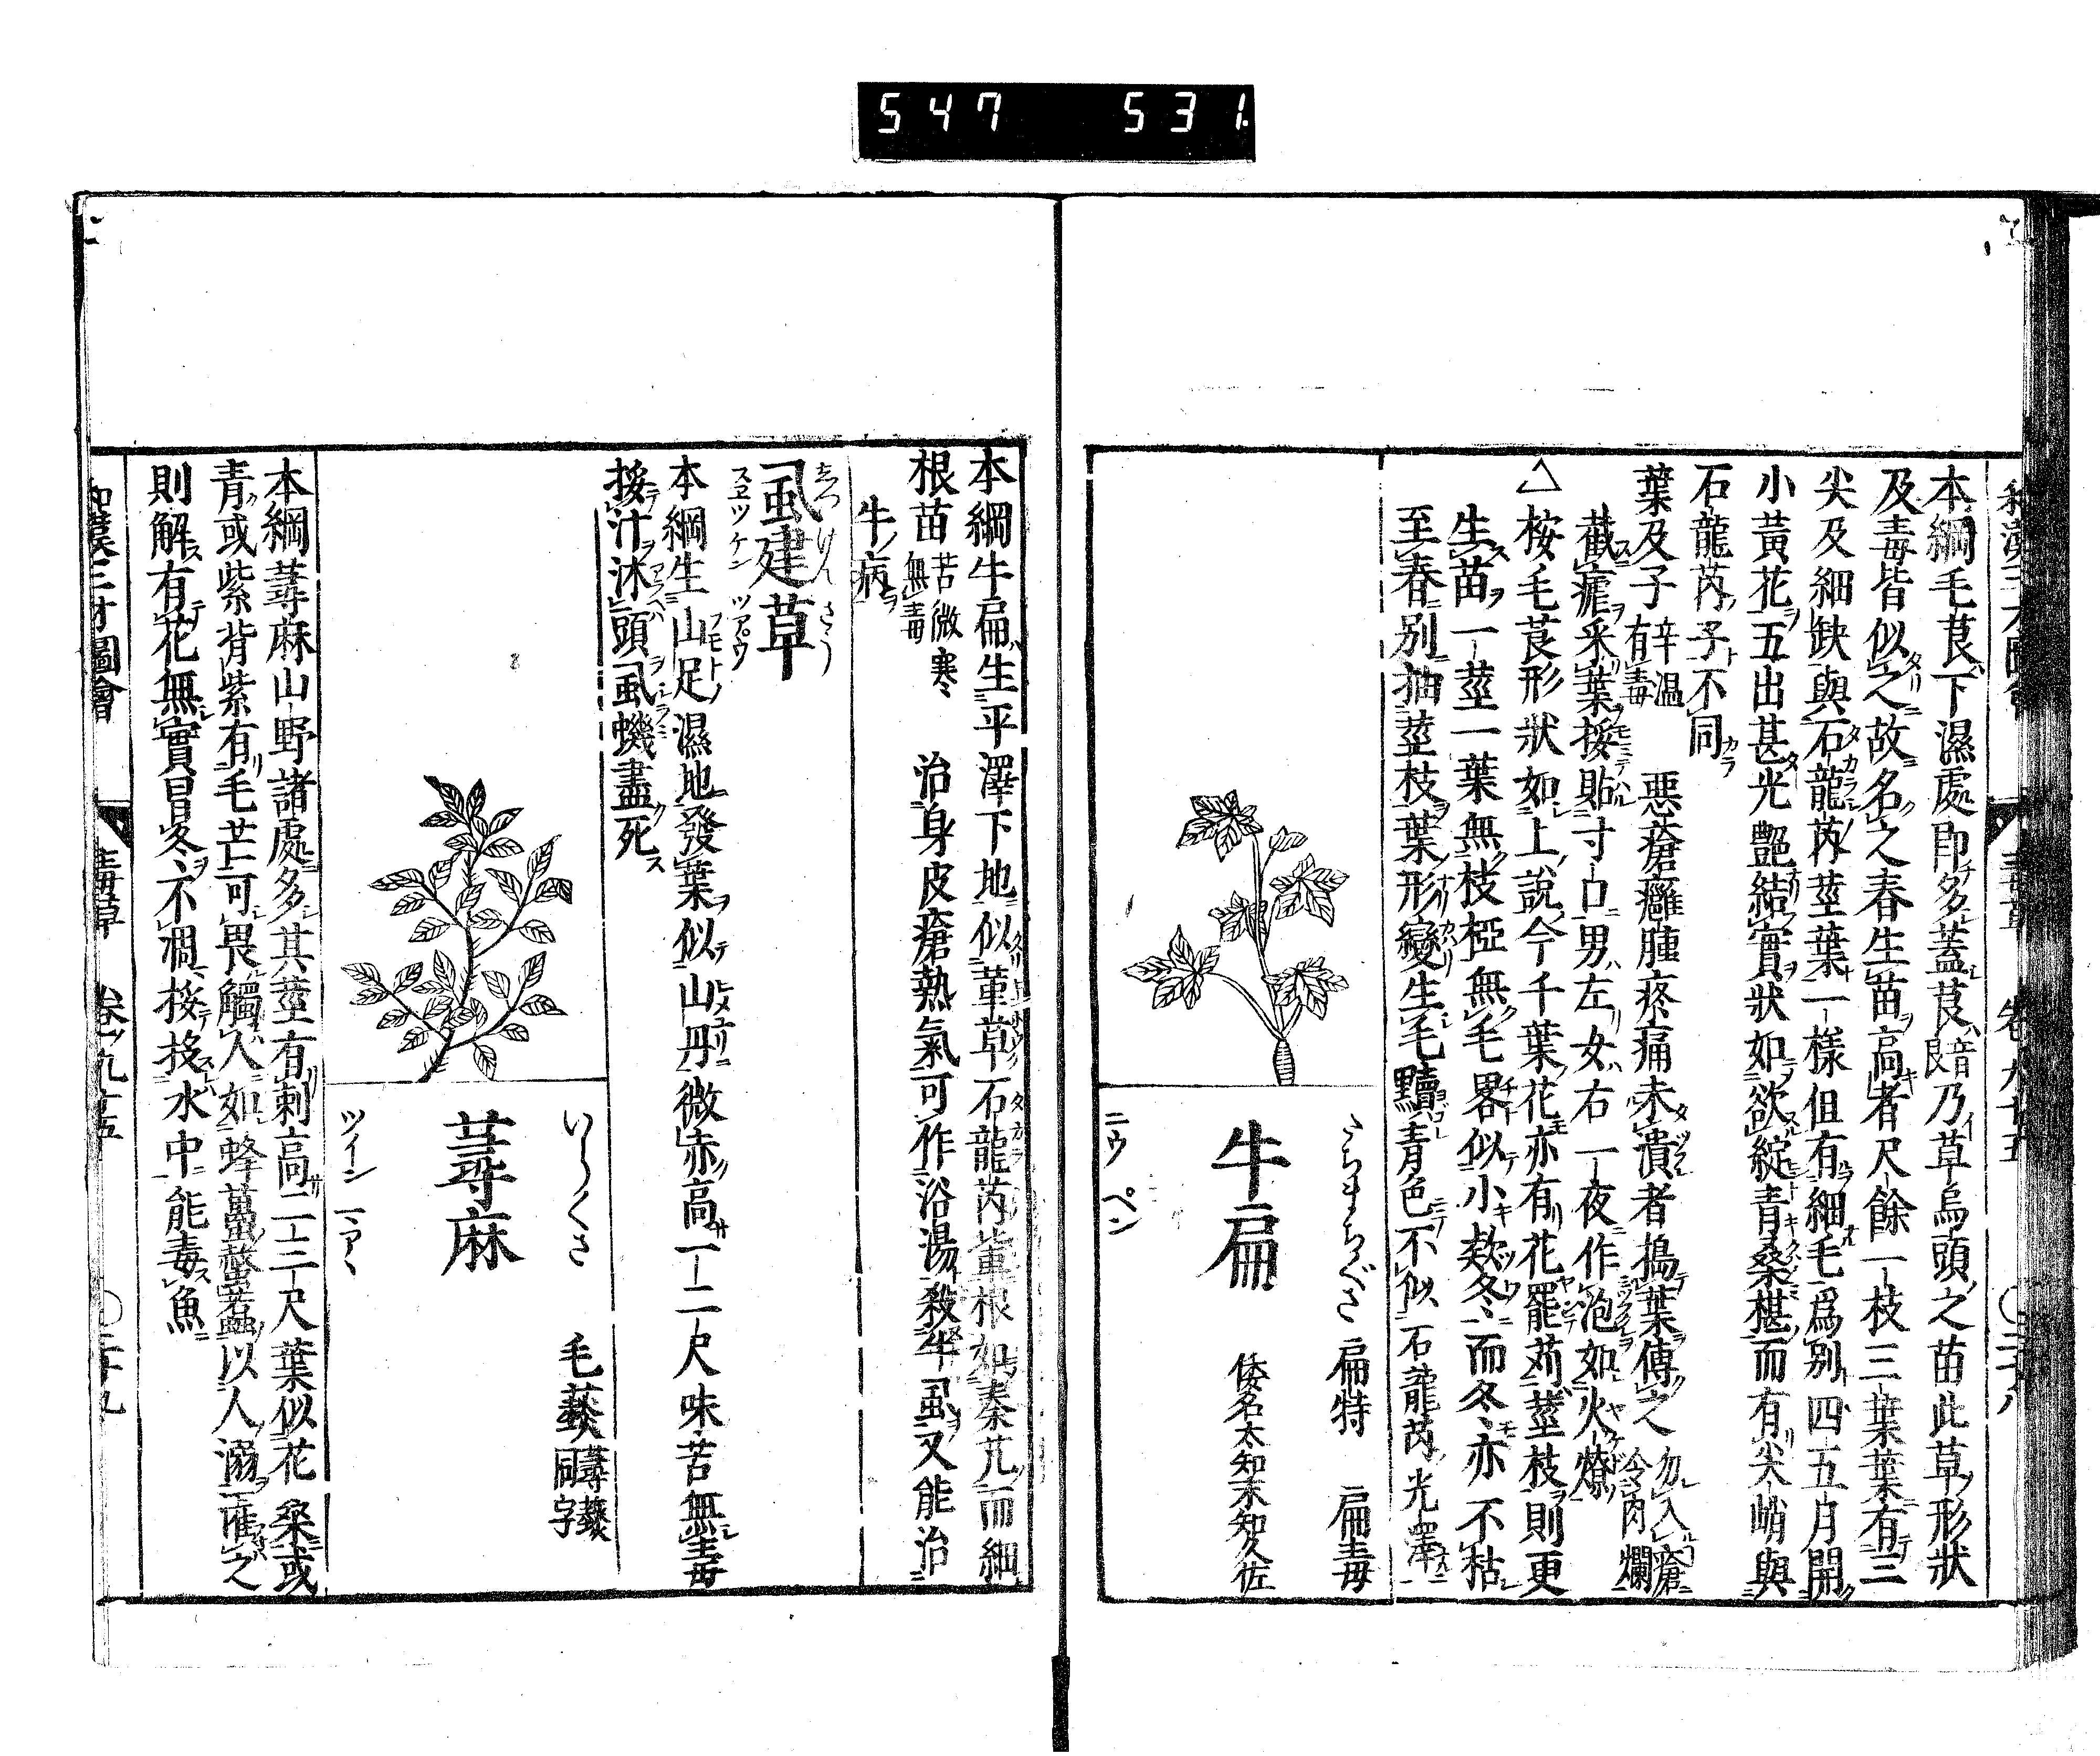 547 531
本綱毛茛下濕處即多蓋茛音艮乃草烏頭之苗此草形狀
及毒皆似之故名之春生苗高者尺餘一枝三葉葉有三
尖及細缺與石龍芮莖葉一樣但有細毛爲別四五月開
小黃花五出甚光艷結實狀如欲綻青桑椹而有尖峭與
石龍芮子不同
葉及子辛温有毒 惡瘡癰腫疼痛未潰者搗葉傅之勿入瘡令肉爛
截瘧采葉挼貼寸口男左女右一夜作泡如火燎
△桉毛茛形狀如上說今千葉花亦有花罷苅莖枝則更
生苗一莖一葉無枝椏無毛畧似小欵冬而冬亦不枯
至春別抽莖枝葉形變生毛黷青色不似石龍芮光澤
たちまちぐさ 扁特 扁毒
牛扁 倭名太知末知久佐
ニウ ペン
本綱牛扁生平澤下地似菫草石龍芮輩根如秦艽而細
根苗苦微寒無毒 治身皮瘡熱氣可作浴湯殺牛虱又能治
牛病
しつけんさう
虱建草
スヱツ ケン ツアパウ
本綱生山足濕地發葉似山丹微赤高一二尺味苦無毒
挼汁沐頭虱蟣盡死
いらくさ 毛蕁
蕁麻
本綱蕁麻山野諸處多其莖有刺高二三尺葉似花桑或
青或紫背紫有毛芒可畏觸人如蜂蠆螫蠚以人溺濯之
則解有花無實冒冬不凋挼投水中能毒魚